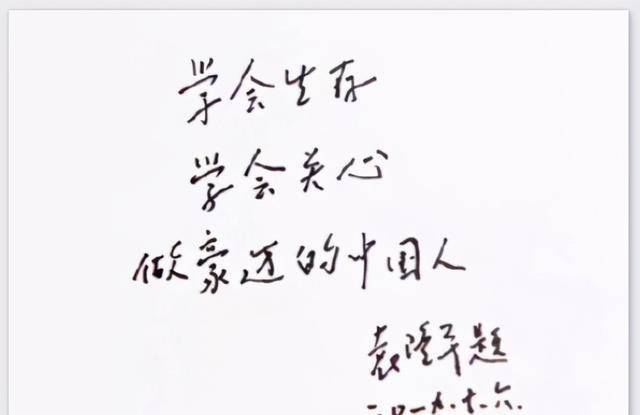 学会生存
学会关心
做豪迈的中国人
袁隆平题
二〇一九.十.六.